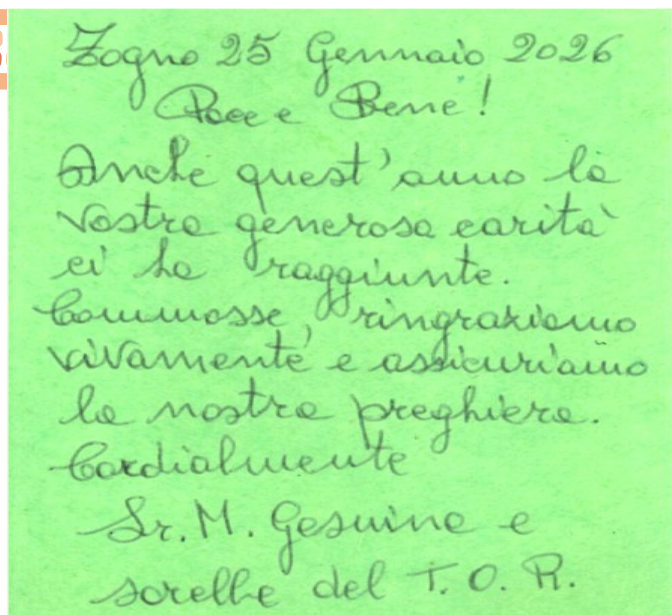 Zogno 25 Gennaio 2026
Pace e Bene!
Anche quest'anno la
vostra generosa carità
ci ha raggiunte.
Commosse, ringraziamo
vivamente e assicuriamo
la nostra preghiera.
Cordialmente
Sr. M. Gesuina e
sorelle del T. O. R.